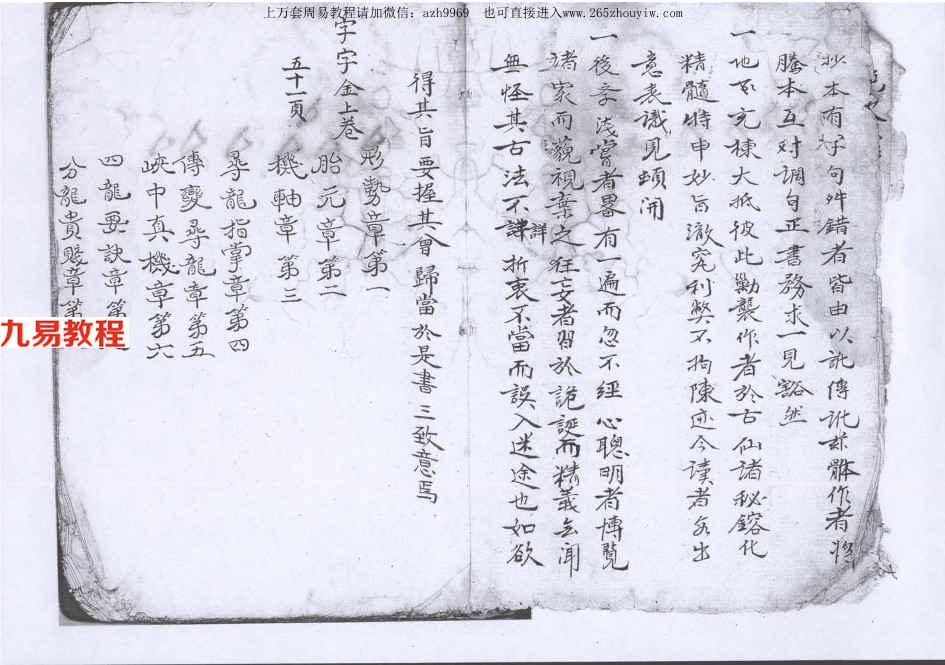 上万套周易教程请加微信：azh9969　也可直接进入www.265zhouyiw.com
抄本有字句舛錯者皆由以訛傳訛 體作者將
謄本互对調句正書務求一見豁然
一地 充棟大抵彼此勦襲作者於古仙諸秘鎔化
精髓特申妙旨澈究利弊不拘陳迹今讀者 出
意表識見頓開
一後 淺嘗者畧有一遍而忽不經心聰明者博覽
諸家而藐視棄之狂妄者習於詭誕而精義 聞
無怪其古法不詳折衷不當而誤入迷途也如欲
得其旨要握其會歸當於是書三致意焉
字字金上卷
五十一頁
形勢章第一
胎元章第二
機軸章第三
尋龍指掌章第四
傳變尋龍章第五
峽中真機章第六
四龍要訣章第
分龍貴賤章第
九易教程